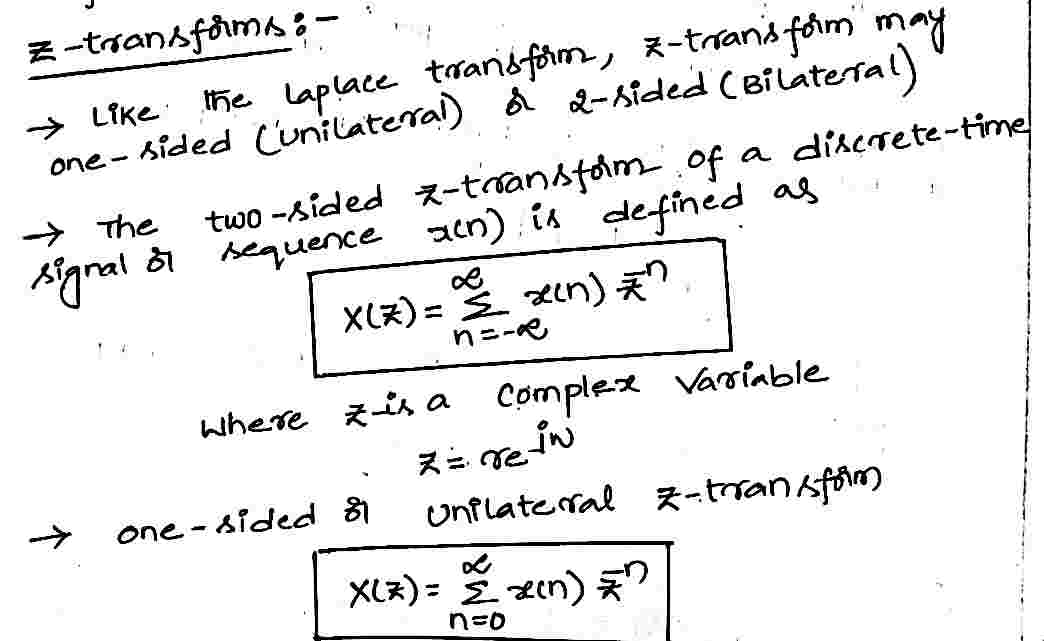 z-transforms:-
→ Like the Laplace transform, z-transform may
one-sided (unilateral) or 2-sided (Bilateral)
→ The two-sided z-transform of a discrete-time
signal or sequence x(n) is defined as
X(z) = ∑_{n=-∞}^{∞} x(n) z^{-n}
Where z is a complex variable
z = re^{-jw}
→ one-sided or unilateral z-transform
X(z) = ∑_{n=0}^{∞} x(n) z^{-n}